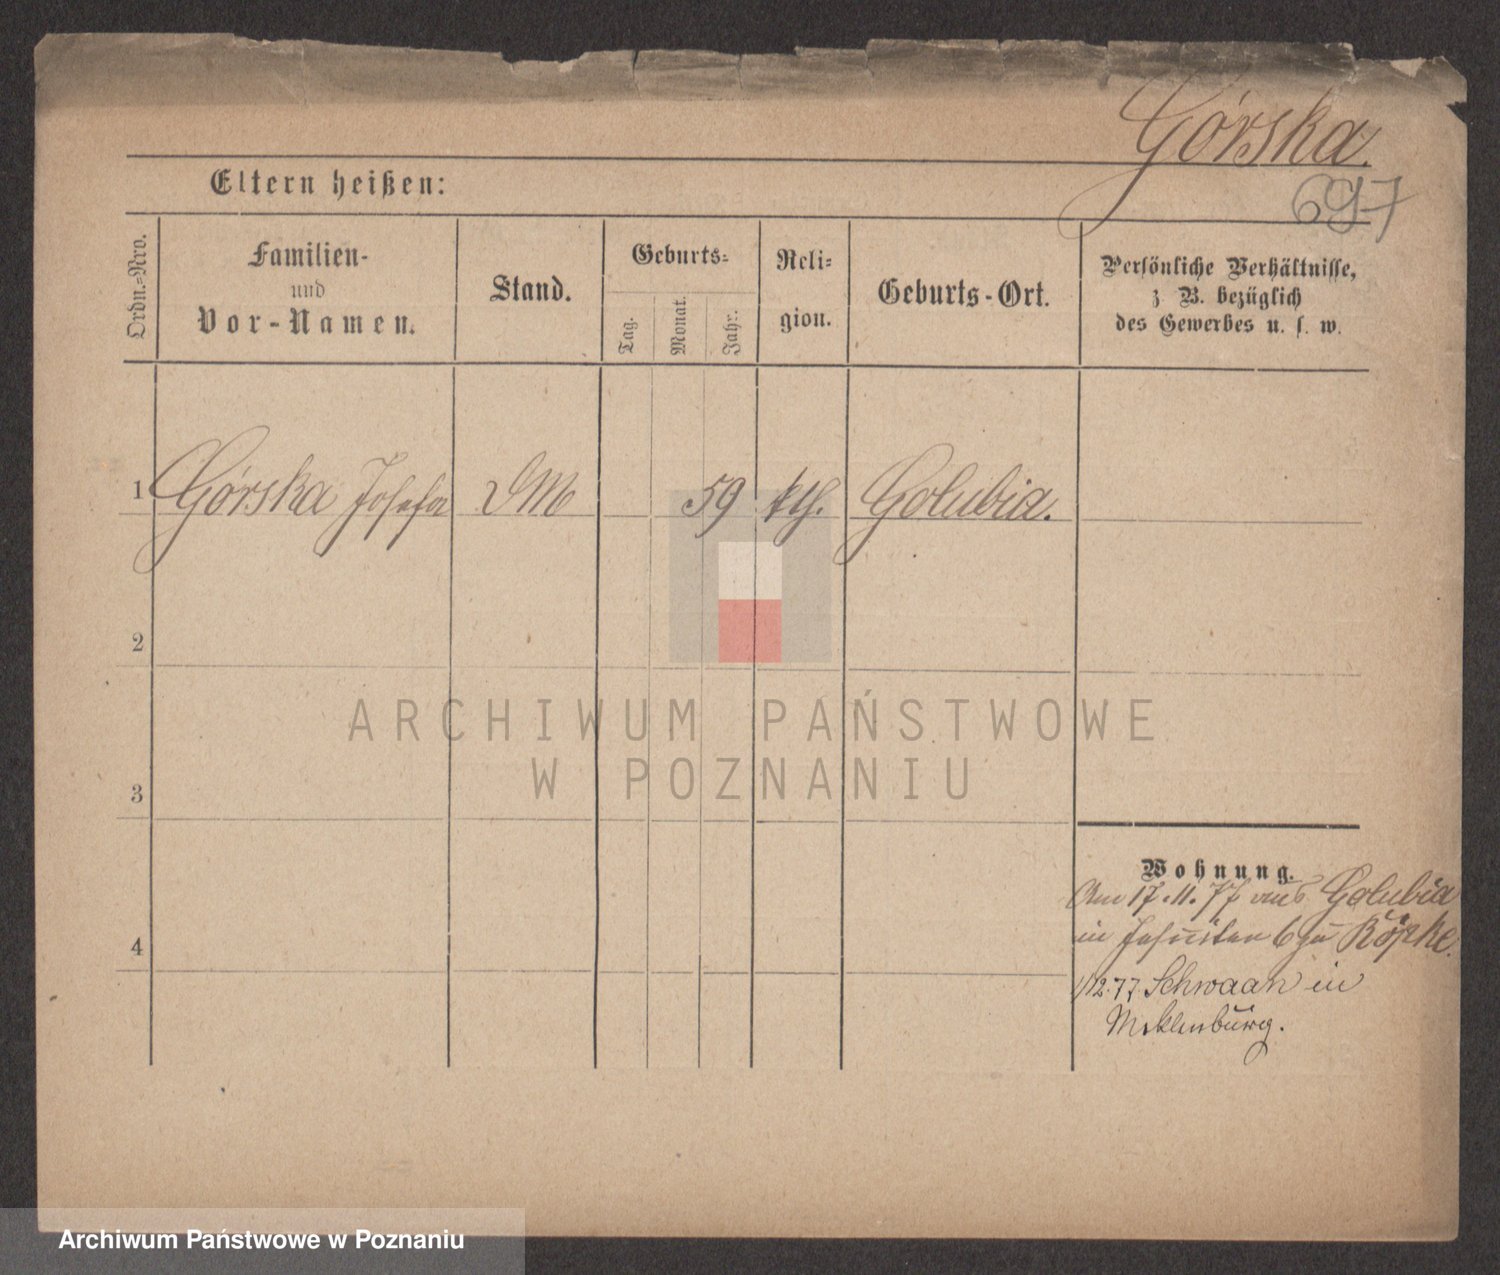 Górska.
697
Eltern heißen:
Ordn.-Nro.
Familien-
und
Vor-Namen.
Stand.
Geburts-
Tag.
Monat.
Jahr.
Reli-
gion.
Geburts-Ort.
Persönliche Verhältnisse,
z. B. bezüglich
des Gewerbes u. s. w.
1 Górska Josefa DM 59 kth. Golubia.
2
3
4
Wohnung.
Am 17.11.77 aus Golubia
in Jesuiten 6 zu Köpke.
1/12.77 Schwaan in
Meklenburg.
ARCHIWUM PAŃSTWOWE
W POZNANIU
Archiwum Państwowe w Poznaniu